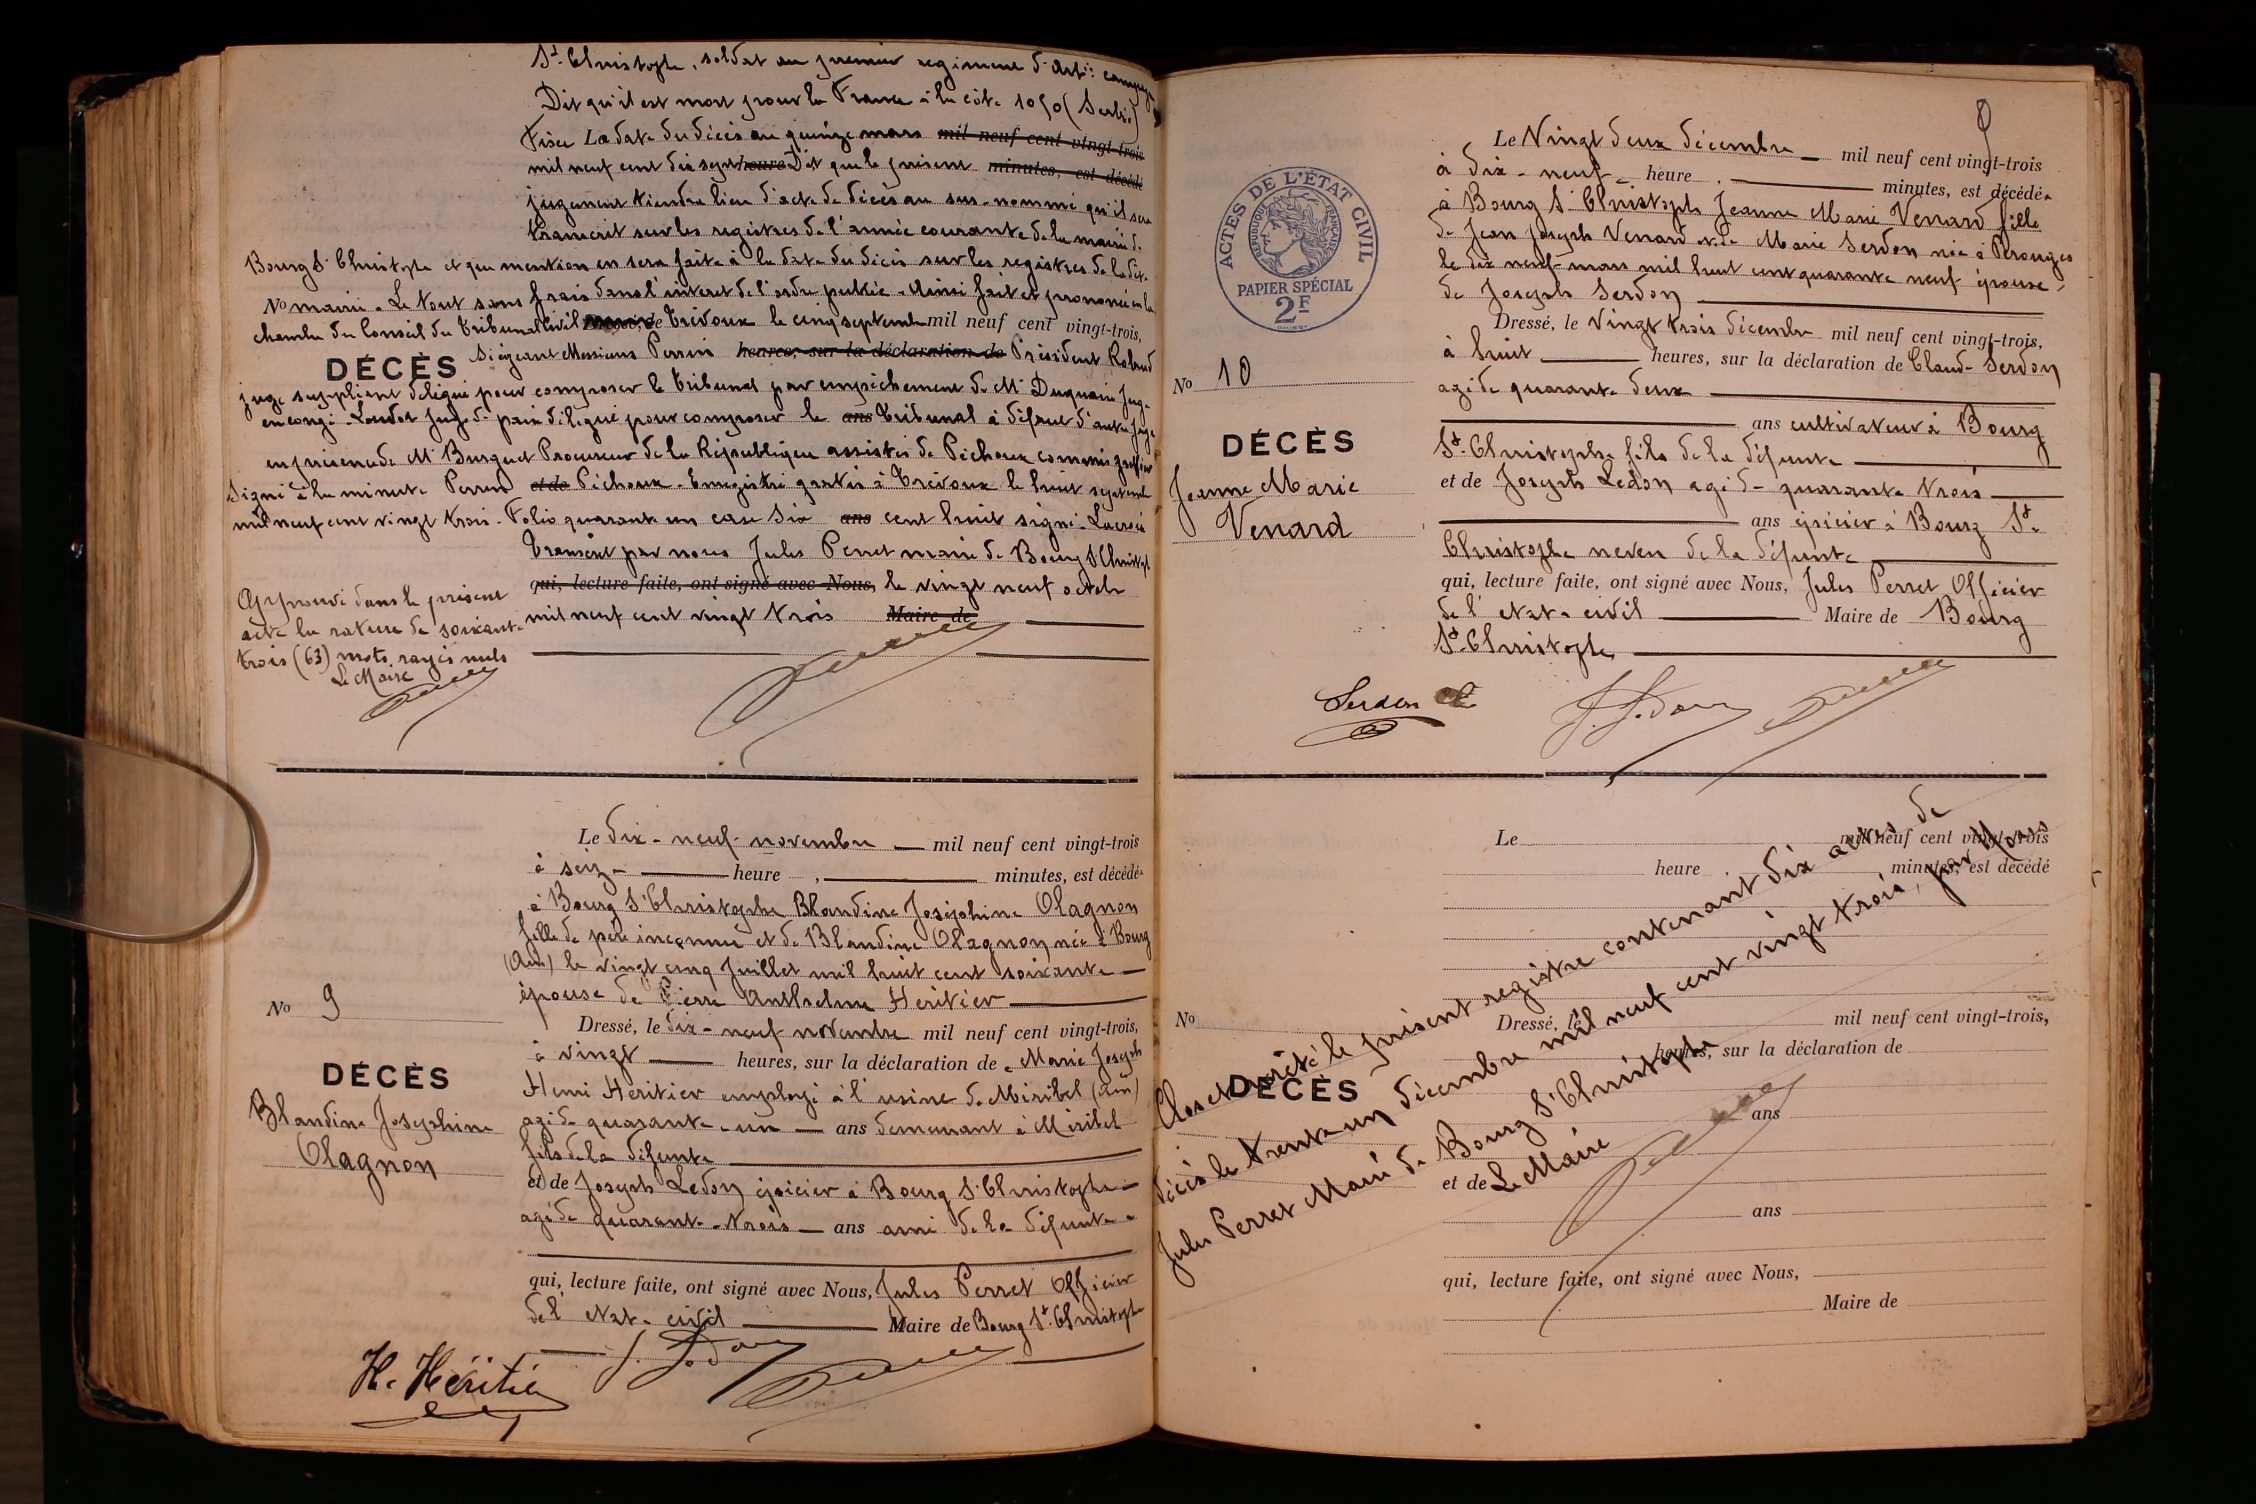 St Christophe, soldat au premier regiment d'artie campagne
Dit qu'il est mort pour la France à la côte 1050 (Serbie)
Fixe La date du décès au quinze mars mil neuf cent vingt-trois
mil neuf cent dix sept heure Dit que le présent minutes, est décédé
jugement tiendra lieu d'acte de décès au sus-nommé qu'il sera
transcrit sur les registres de l'année courante de la mairie de
Bourg St Christophe et que mention en sera faite à la date du décès sur les registres de la dite
No mairie. Le tout sans frais dans l'interet de l'ordre public. Ainsi fait et prononcé en la
chambre du Conseil du Tribunal Civil de Trévoux le cinq septembre mil neuf cent vingt-trois,
DÉCÈS siégeant Messieurs Perrin heures, sur la déclaration de Président Roland
juge suppliant délégué pour composer le Tribunal par empêchement de Mr Duquaire Juge
en congé. Loudot Juge de paix délégué pour composer le ans Tribunal à défaut d'autre juge
en présence de Mr Burguet Procureur de la République assistés de Pichoux commis greffier
Signé à la minute Perrin et de Pichoux. Enregistré gratis à Trévoux le huit septembre
mil neuf cent vingt trois. Folio quarante un case six ans cent huit signé. Lacroix
Transcrit par nous Jules Perret maire de Bourg St Christophe
qui, lecture faite, ont signé avec Nous, le vingt neuf octobre
mil neuf cent vingt trois Maire de
Approuvé dans le présent
acte la rature de soixante
trois (63) mots rayés nuls
Le Maire
Le dix-neuf novembre mil neuf cent vingt-trois
à seize heure , minutes, est décédée
à Bourg St Christophe Blandine Joséphine Olagnon
fille de père inconnu et de Blandine Olagnon née à Bourg
(Ain) le vingt cinq Juillet mil huit cent soixante
épouse de Pierre Anthelme Heritier
No 9
Dressé, le dix-neuf novembre mil neuf cent vingt-trois,
à vingt heures, sur la déclaration de Marie Joseph
Henri Heritier employé à l'usine de Miribel (Ain)
DÉCÈS
Blandine Josephine
Olagnon
agé de quarante-un ans demeurant à Miribel
fils de la défunte
et de Joseph Ledon épicier à Bourg St Christophe
agé de quarante-trois ans ami de la défunte
qui, lecture faite, ont signé avec Nous, Jules Perret Officier
de l'etat-civil Maire de Bourg St Christophe
H. Héritier
9
ACTES DE L'ÉTAT CIVIL
RÉPUBLIQUE FRANÇAISE
PAPIER SPÉCIAL
2F
Le Vingt deux décembre mil neuf cent vingt-trois
à dix-neuf heure , minutes, est décédée
à Bourg St Christophe Jeanne Marie Venard fille
de Jean Joseph Venard et de Marie Serdon née à Perouges
le dix neuf mars mil huit cent quarante neuf épouse
de Joseph Serdon
Dressé, le Vingt trois décembre mil neuf cent vingt-trois,
à huit heures, sur la déclaration de Claude Serdon
No 10
agé de quarante deux
ans cultivateur à Bourg
DÉCÈS
Jeanne Marie
Venard
St-Christophe fils de la défunte
et de Joseph Ledon agé de quarante trois
ans épicier à Bourg St
Christophe neveu de la défunte
qui, lecture faite, ont signé avec Nous, Jules Perret Officier
de l'etat-civil Maire de Bourg
St-Christophe
Serdon
J. Ledon
Le mil neuf cent vingt-trois
heure minutes, est décédé
No
Dressé, le mil neuf cent vingt-trois,
heures, sur la déclaration de
DÉCÈS
ans
et de
ans
qui, lecture faite, ont signé avec Nous,
Maire de
Clos et arrêté le présent registre contenant dix actes de
décès le trente un décembre mil neuf cent vingt trois, par Nous
Jules Perret Maire de Bourg St Christophe
Le Maire